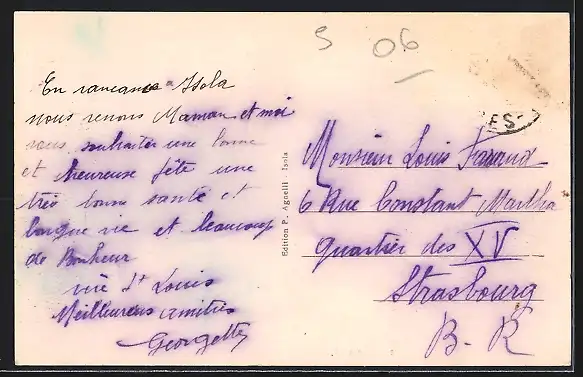 S 06
En vacance à Isola
nous venons Maman et moi
vous souhaiter une bonne
et heureuse fête une
très bonne santé et
longue vie et beaucoup
de Bonheur
vive St Louis
Meilleures amitiés
Georgette
Edition P. Agnelli - Isola
ES-
Monsieur Louis
6 Rue Constant Martha
quartier des XV
Strasbourg
B. R